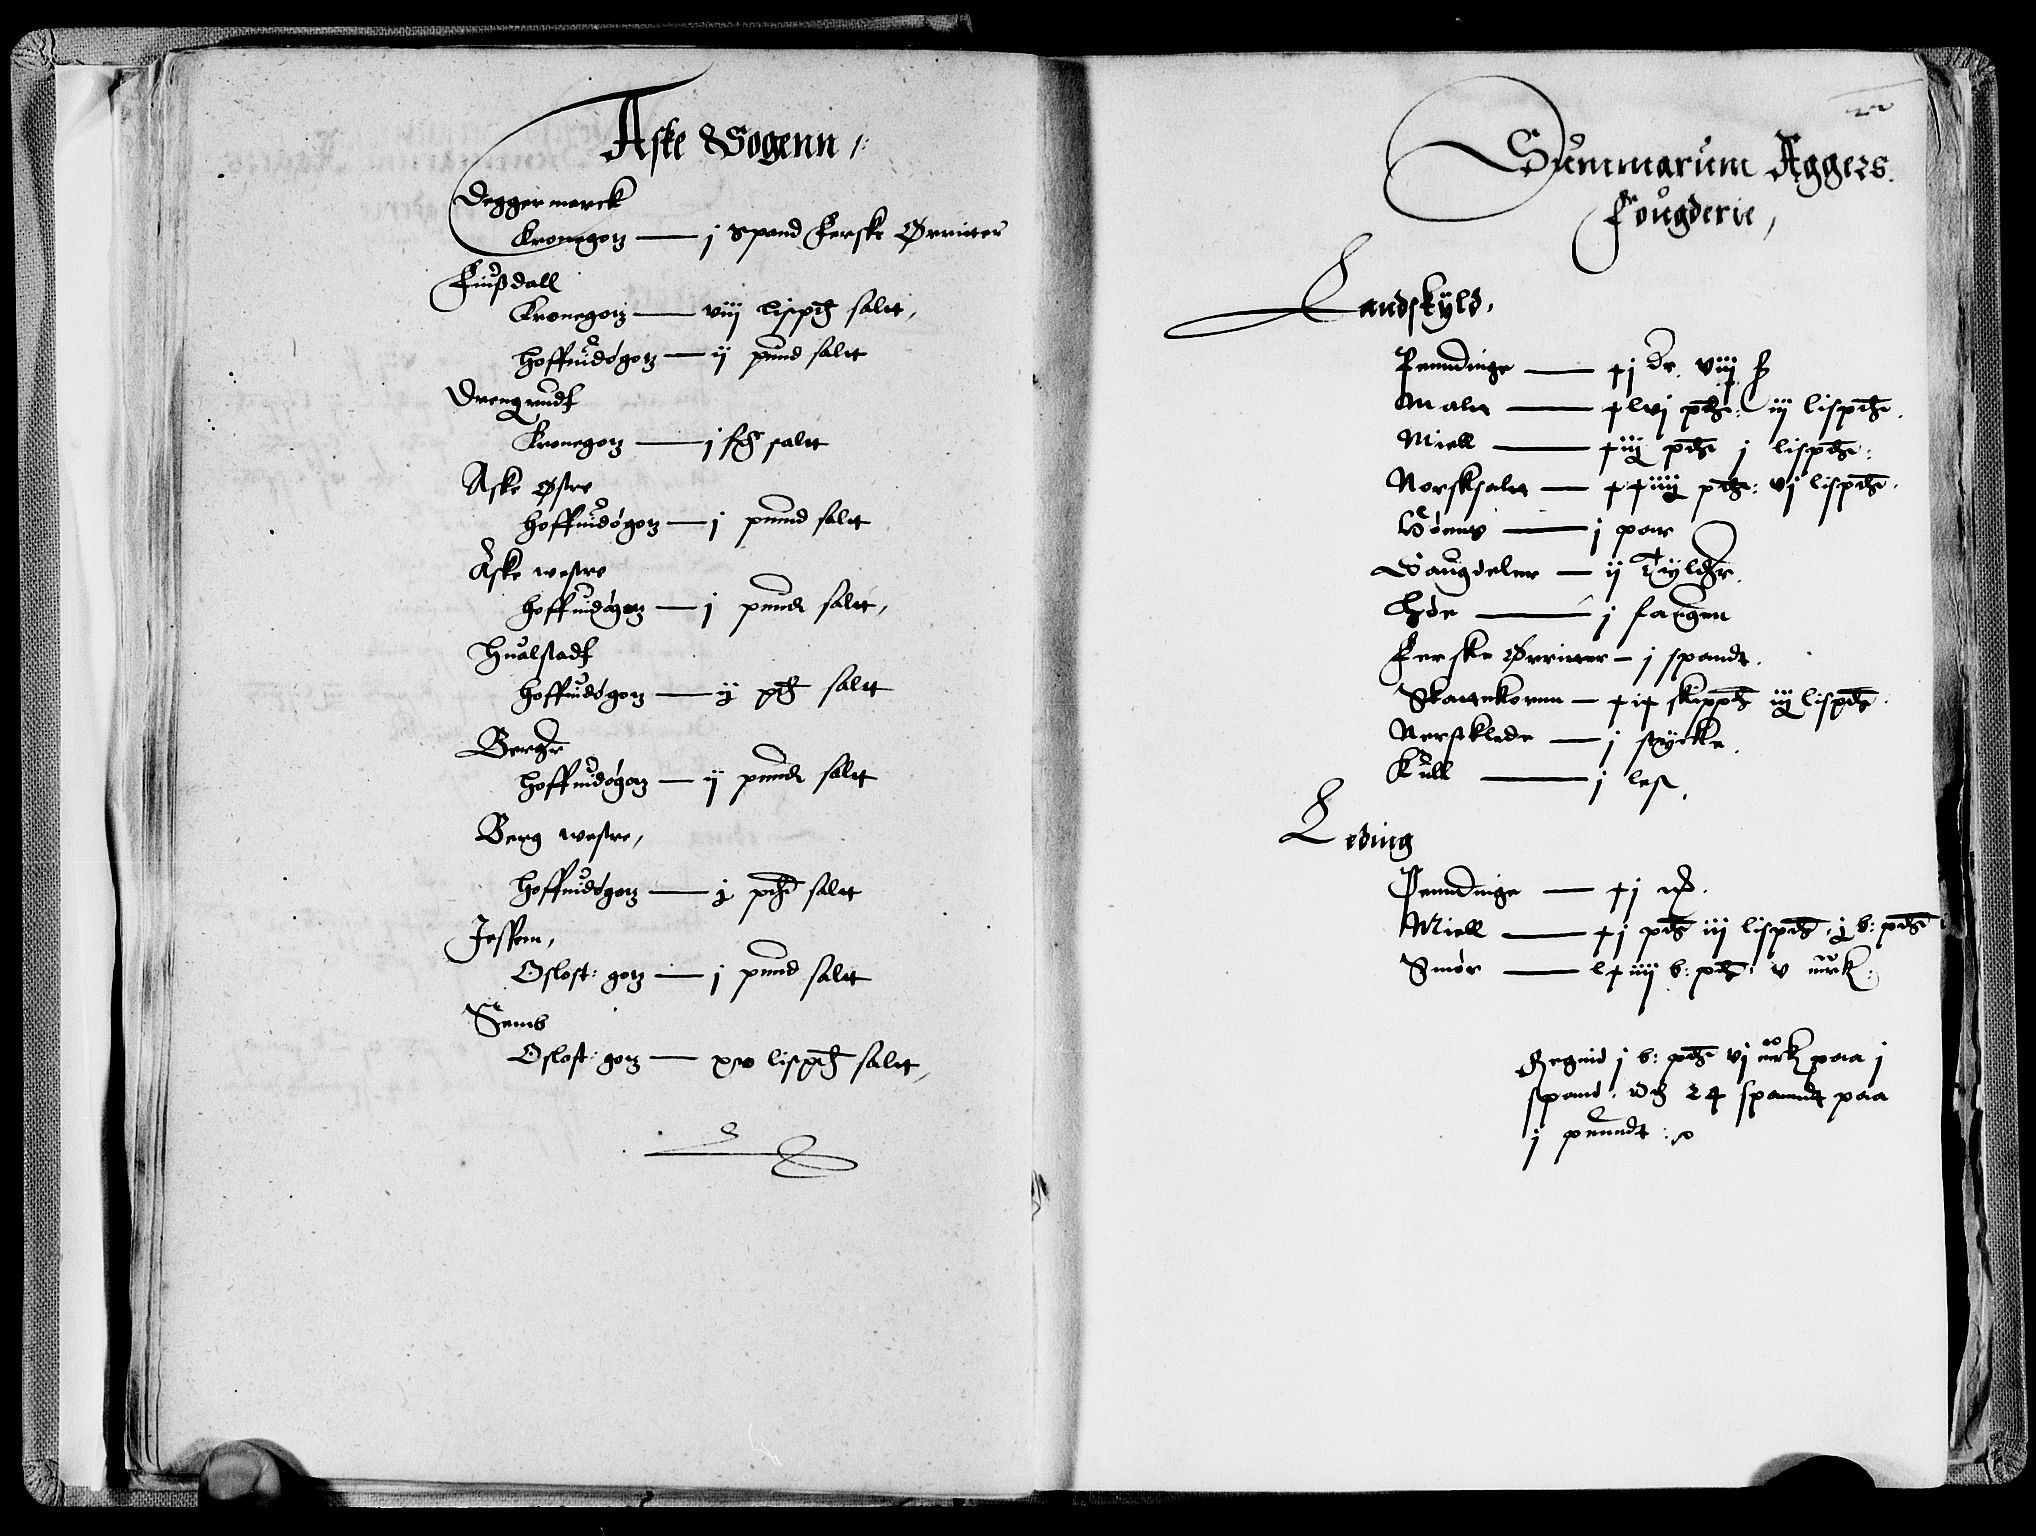 Aske Sogenn /:
Deggermarck
Kronegotz — j Spand Ferske Ørritter
Fiußdall
Kronegotz — viij lispd salt,
Hoffuidøgotz — ij pund salt
Drengrudt
Kronegotz — j salt
Aske Østre
Hoffuidøgotz — j pund salt
Aske westre
Hoffuidøgotz — j pundt salt,
Hualstadt
Hoffuidøgotz — ij pd salt
Berger
Hoffuidøgotz — ij pundt salt
Berg westre,
Hoffuidøgotz — j pd salt
Jessem,
Oslost: gotz — j pund salt
Semb
Oslost: gotz — xv lispd salt,
Summarum Aggers
Fougderie,
Landskyld,
Penndinge — xj dr. viij ß
Malt — xlvj pd: iij lispd.
Miell — xiij pd j lispd:
Norsksalt — xxiiij pd: vj lispd.
— j par
Saugdeler — ij Tylder.
Høe — j fangen
Ferske Ørritter — j spandt.
Skattekornn — xix skippd iij lispd.
Nerstklede — j stycke.
Kull — j lest.
Leding
Penndinge — xj
Miell — xj pd iij lispd: j b: pd
Smør — lxiiij b: pd: v mrk:
Regnid j b: pd vj mrk paa j
spand. Och 24 spanndt paa
j punndt :